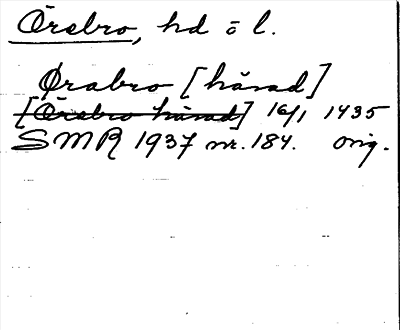 Örebro, hd ö l.
Ørabro [härad]
[Örebro härad] 16/1 1435
SMR 1937 nr. 184. orig.